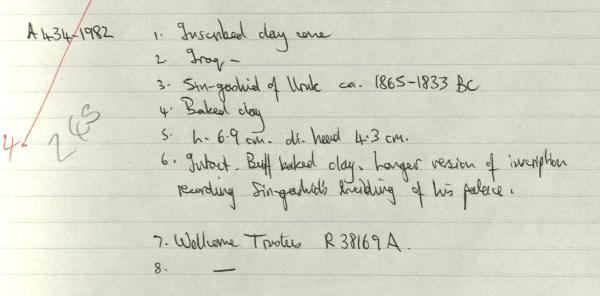 A 434-1982 1. Inscribed clay cone
2 Iraq -
3. Sin-gashid of Uruk ca. 1865-1833 BC
4. Baked clay
5. h. 6.9 cm. di. head 4.3 cm.
6. Intact. Buff baked clay. Longer version of inscription
recording Sin-gashid's building of his palace.
7. Wellcome Trustees R 38169 A.
8. —
4.
245